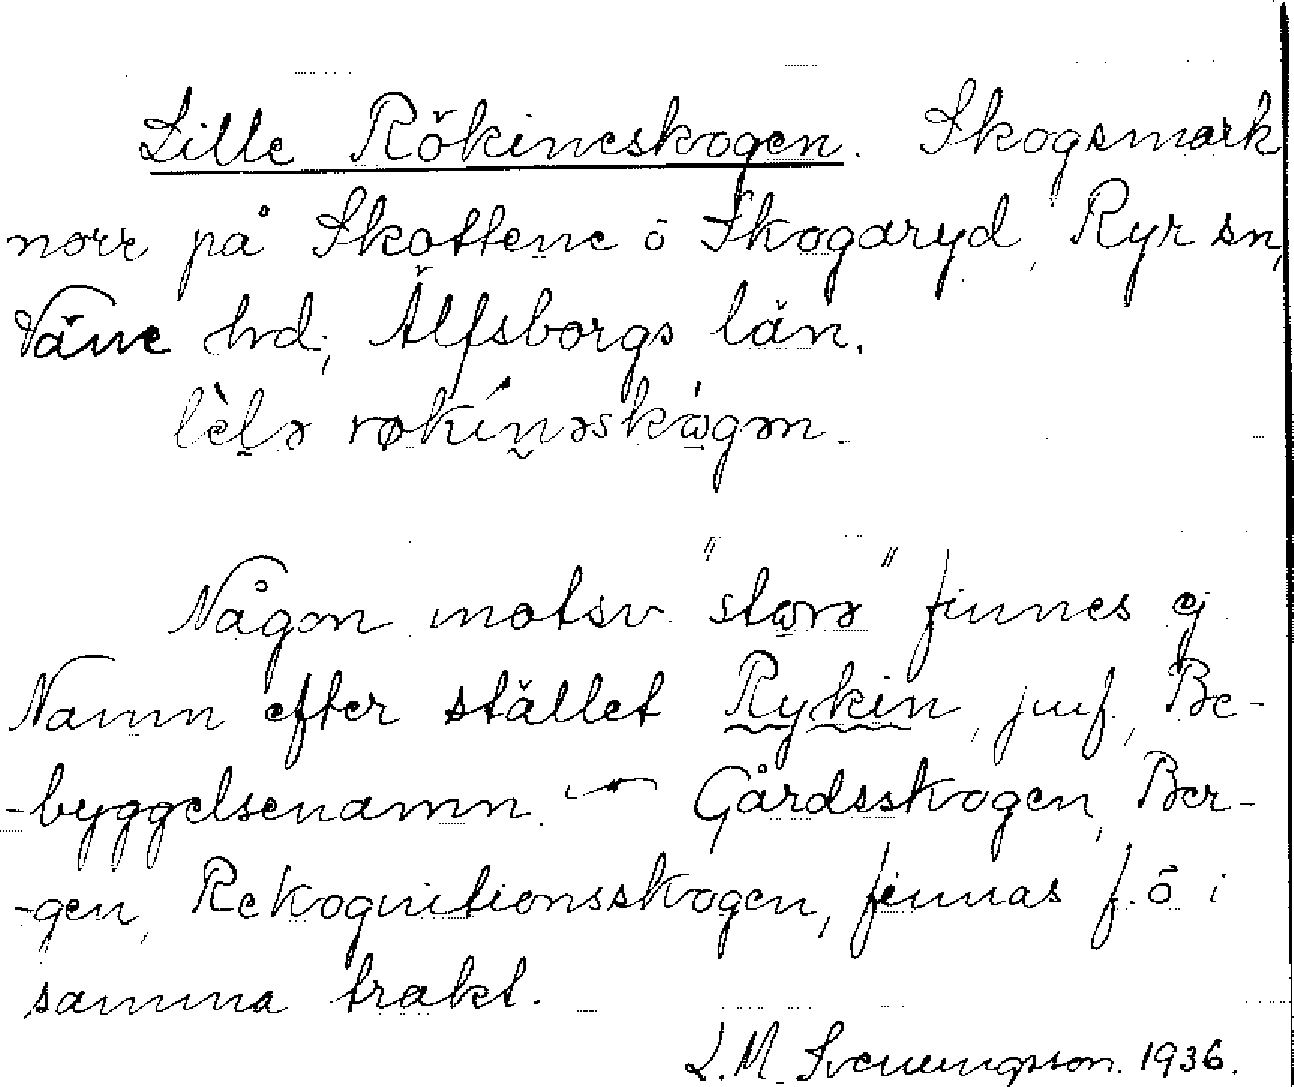 Lille Rökineskogen. Skogsmark
norr på Skottene ö Skogaryd, Ryr sn,
Väne hd; Älfsborgs län.
lèlə røkínəskògən.
Någon motsv. "storə" finnes ej
Namn efter stället Rykin, jmf., Be-
-byggelsenamn. — Gårdsskogen, Ber-
-gen, Rekognitionsskogen, finnas f. ö i
samma trakt.
L. M. Svenungsson. 1936.